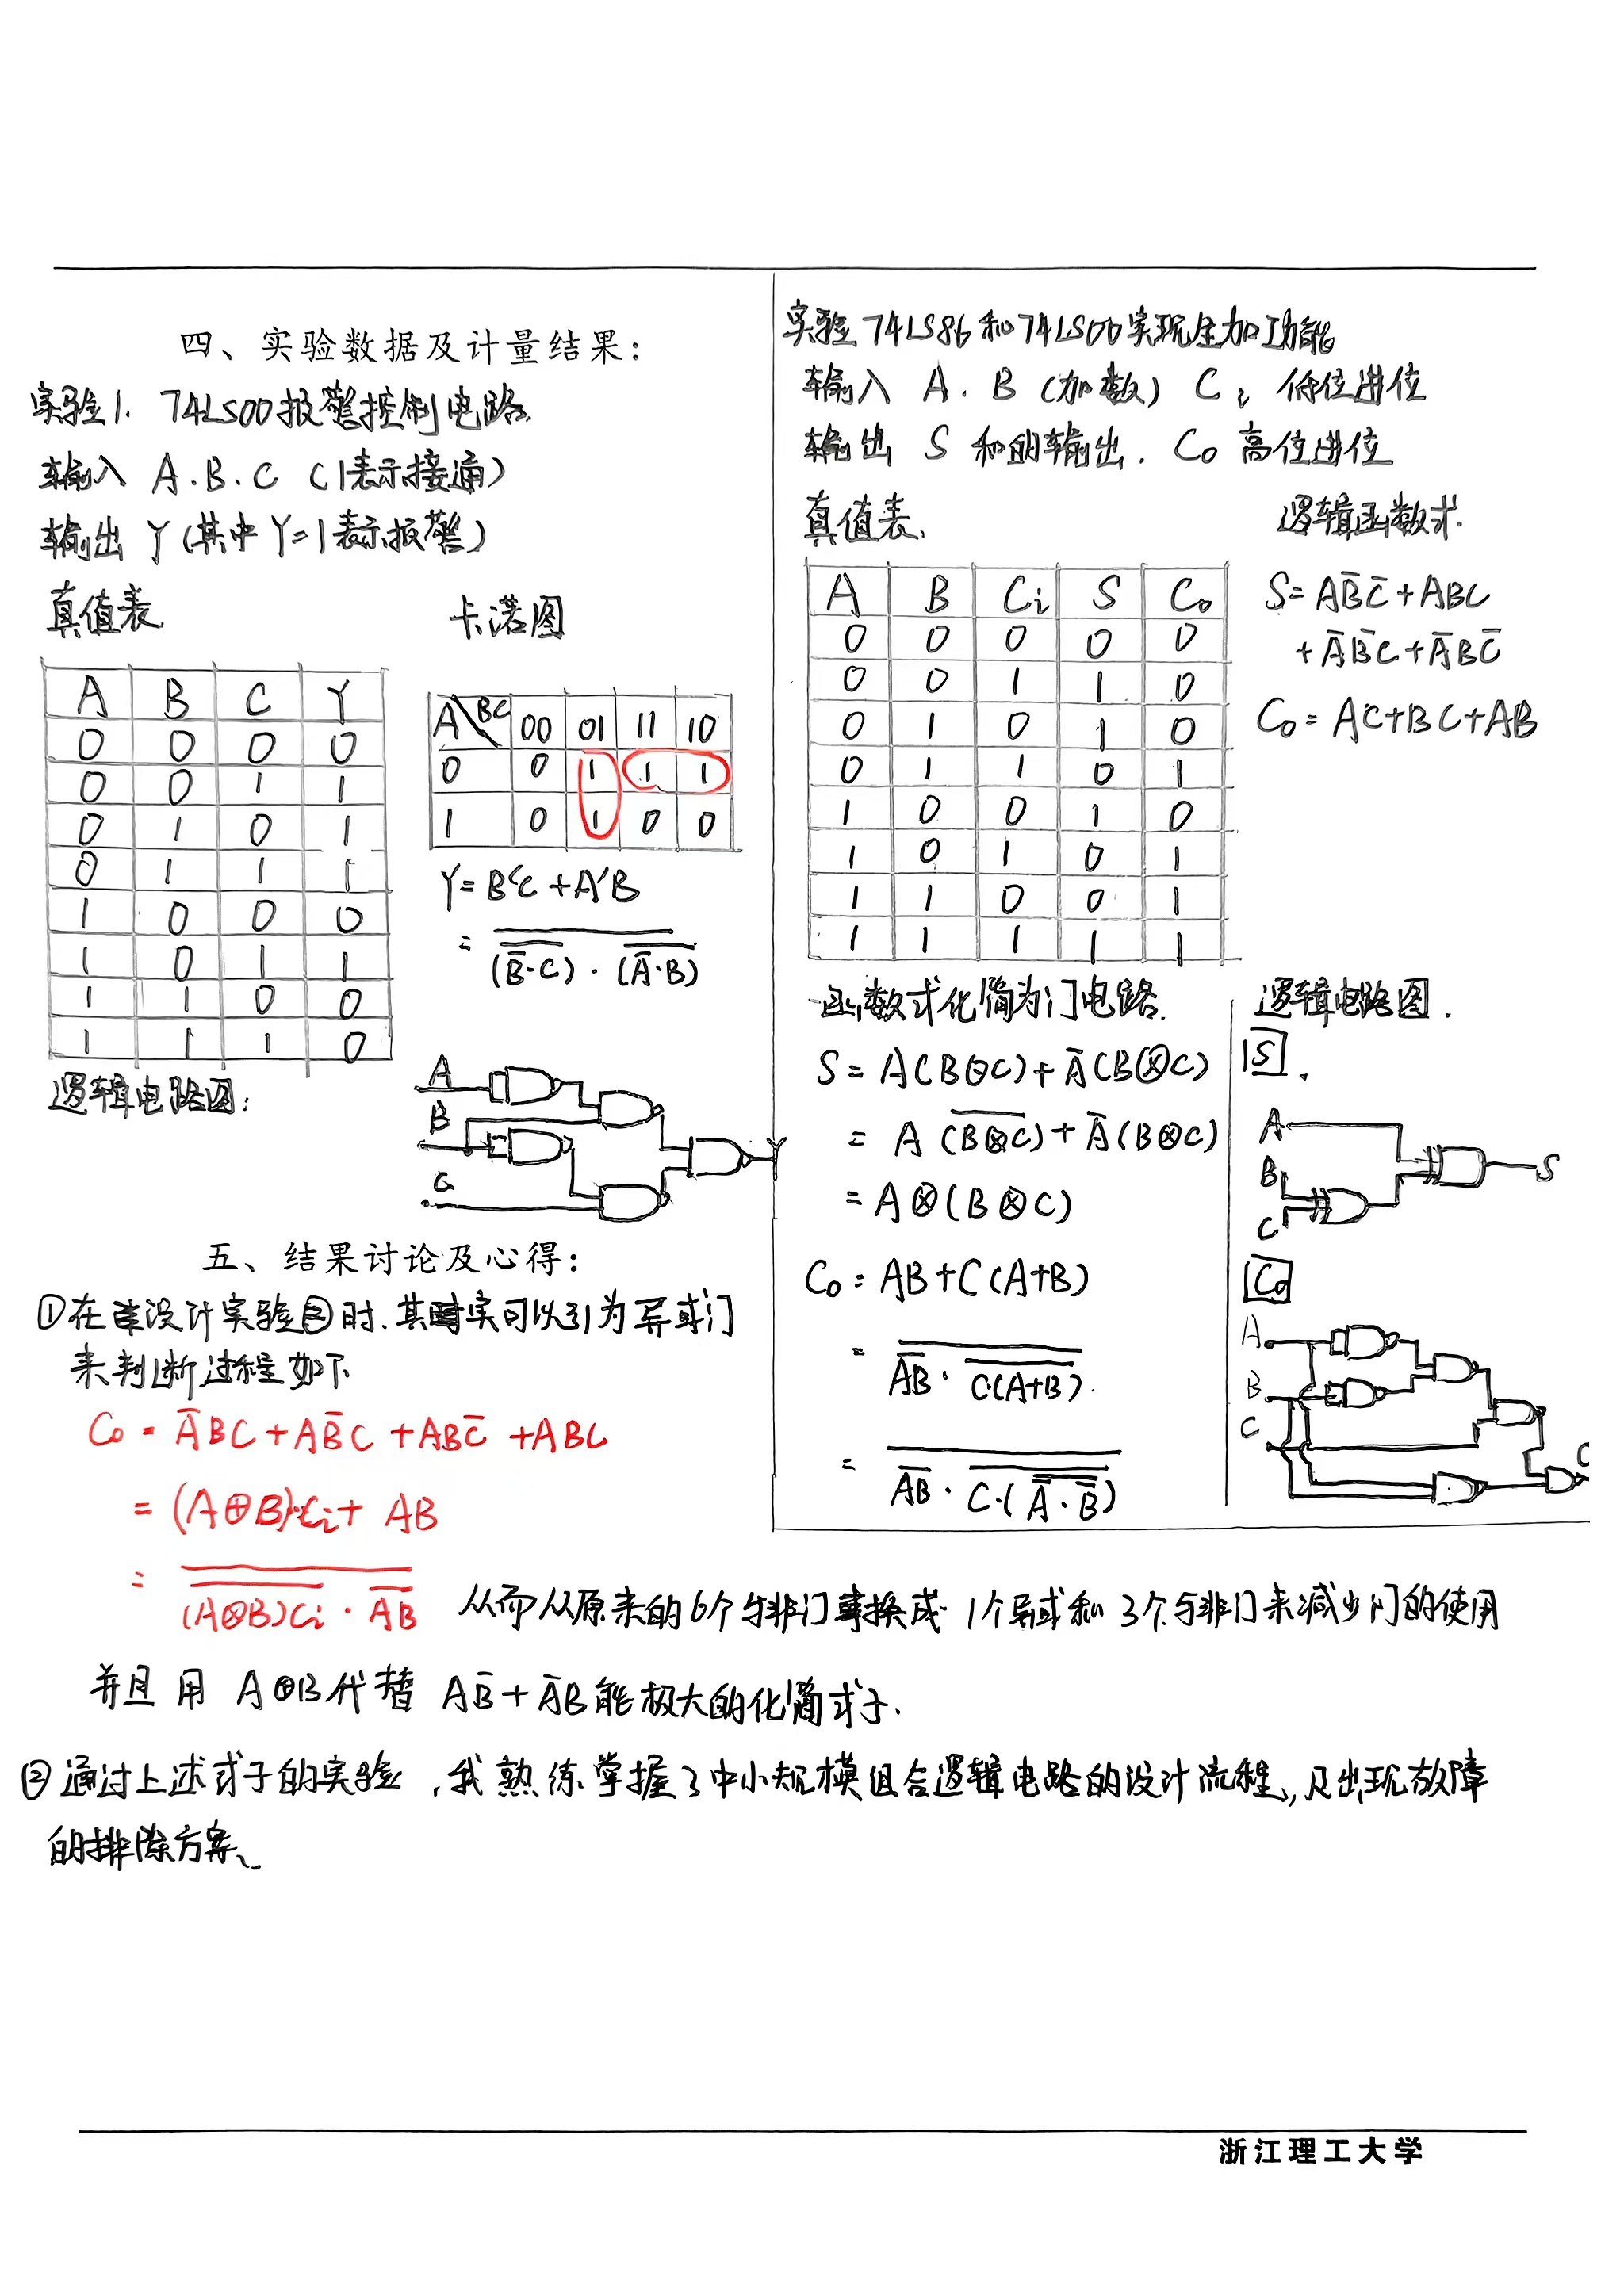 四、实验数据及计量结果：
实验1. 74LS00报警控制电路
输入 A.B.C （1表示接通）
输出 Y（其中Y=1表示报警）
真值表 卡诺图
A B C Y
0 0 0 0
0 0 1 1
0 1 0 1
0 1 1 1
1 0 0 0
1 0 1 1
1 1 0 0
1 1 1 0
A\BC 00 01 11 10
0 0 1 1 1
1 0 1 0 0
Y=B'C+A'B
= \overline{\overline{(\overline{B}·C)}·\overline{(\overline{A}·B)}}
逻辑电路图：
A
B
C
Y
实验74LS86和74LS00实现全加功能
输入 A.B（加数） Ci 低位进位
输出 S 和的输出. Co 高位进位
真值表、 逻辑函数式.
A B Ci S Co
0 0 0 0 0
0 0 1 1 0
0 1 0 1 0
0 1 1 0 1
1 0 0 1 0
1 0 1 0 1
1 1 0 0 1
1 1 1 1 1
S=A\overline{B}\overline{C}+ABC
+\overline{A}\overline{B}C+\overline{A}B\overline{C}
Co=AC+BC+AB
函数式化简为门电路.
S=A(B⊙C)+\overline{A}(B⊗C)
=A\overline{(B⊗C)}+\overline{A}(B⊗C)
=A⊗(B⊗C)
Co=AB+C(A+B)
=\overline{\overline{AB}·\overline{C(A+B)}}.
=\overline{\overline{AB}·\overline{C·(\overline{\overline{A}·\overline{B}})}}
逻辑电路图.
S.
A
B
C
S
Co
A
B
C
C
五、结果讨论及心得：
①在设计实验②时.其实可以引为异或门
来判断过程如下
Co=\overline{A}BC+A\overline{B}C+AB\overline{C}+ABC
=(A⊕B)·Ci+AB
=\overline{\overline{(A⊗B)Ci}·\overline{AB}} 从而从原来的6个与非门替换成1个异或和3个与非门来减少门的使用
并且用 A⊕B代替 A\overline{B}+\overline{A}B能极大的化简式子.
②通过上述式子的实验，我熟练掌握了中小规模组合逻辑电路的设计流程,及出现故障
的排除方案、
浙江理工大学